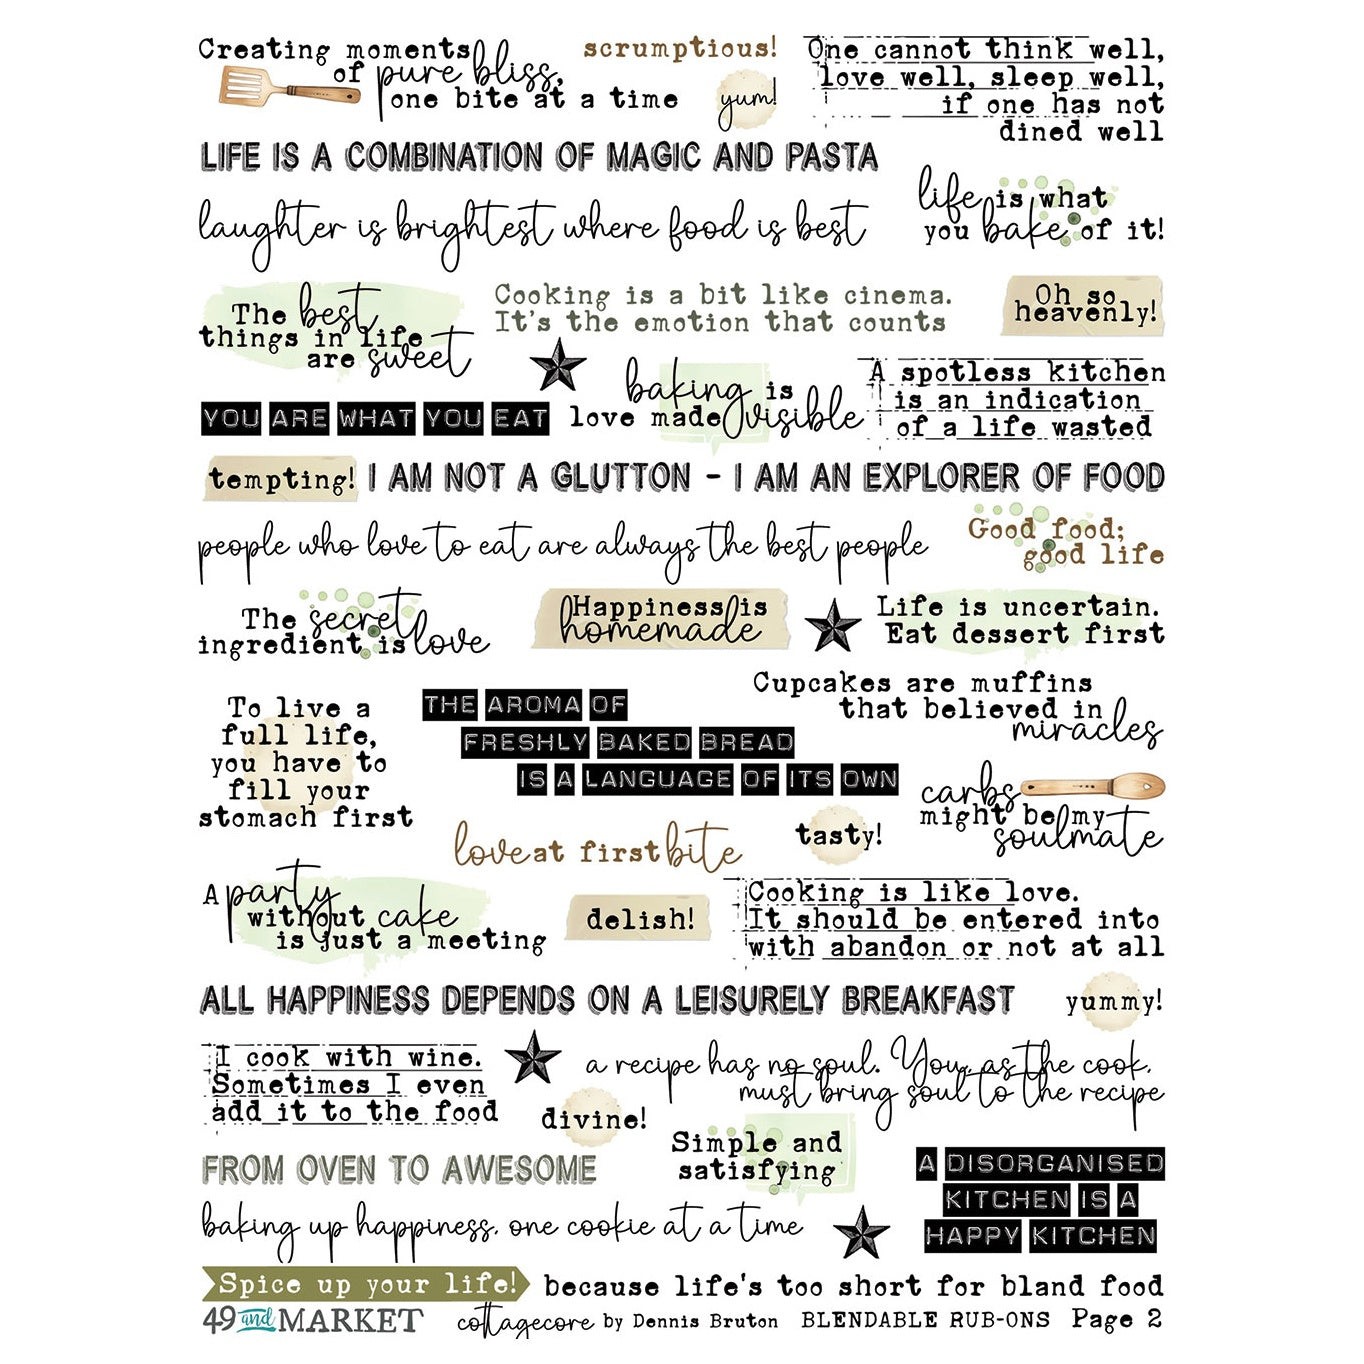 Creating moments
of pure bliss,
one bite at a time
scrumptious!
yum!
One cannot think well,
love well, sleep well,
if one has not
dined well
LIFE IS A COMBINATION OF MAGIC AND PASTA
laughter is brightest where food is best
life is what
you bake of it!
The best
things in life
are sweet
Cooking is a bit like cinema.
It's the emotion that counts
Oh so
heavenly!
YOU ARE WHAT YOU EAT
baking is
love made visible
A spotless kitchen
is an indication
of a life wasted
tempting!
I AM NOT A GLUTTON - I AM AN EXPLORER OF FOOD
people who love to eat are always the best people
Good food;
good life
The secret
ingredient is love
Happiness is
homemade
Life is uncertain.
Eat dessert first
To live a
full life,
you have to
fill your
stomach first
THE AROMA OF
FRESHLY BAKED BREAD
IS A LANGUAGE OF ITS OWN
Cupcakes are muffins
that believed in
miracles
carbs
might be my
soulmate
love at first bite
tasty!
A party
without cake
is just a meeting
delish!
Cooking is like love.
It should be entered into
with abandon or not at all
ALL HAPPINESS DEPENDS ON A LEISURELY BREAKFAST
yummy!
I cook with wine.
Sometimes I even
add it to the food
divine!
a recipe has no soul. You, as the cook,
must bring soul to the recipe
FROM OVEN TO AWESOME
Simple and
satisfying
A DISORGANISED
KITCHEN IS A
HAPPY KITCHEN
baking up happiness, one cookie at a time
Spice up your life!
because life's too short for bland food
49 and MARKET
cottagecore by Dennis Bruton BLENDABLE RUB-ONS Page 2